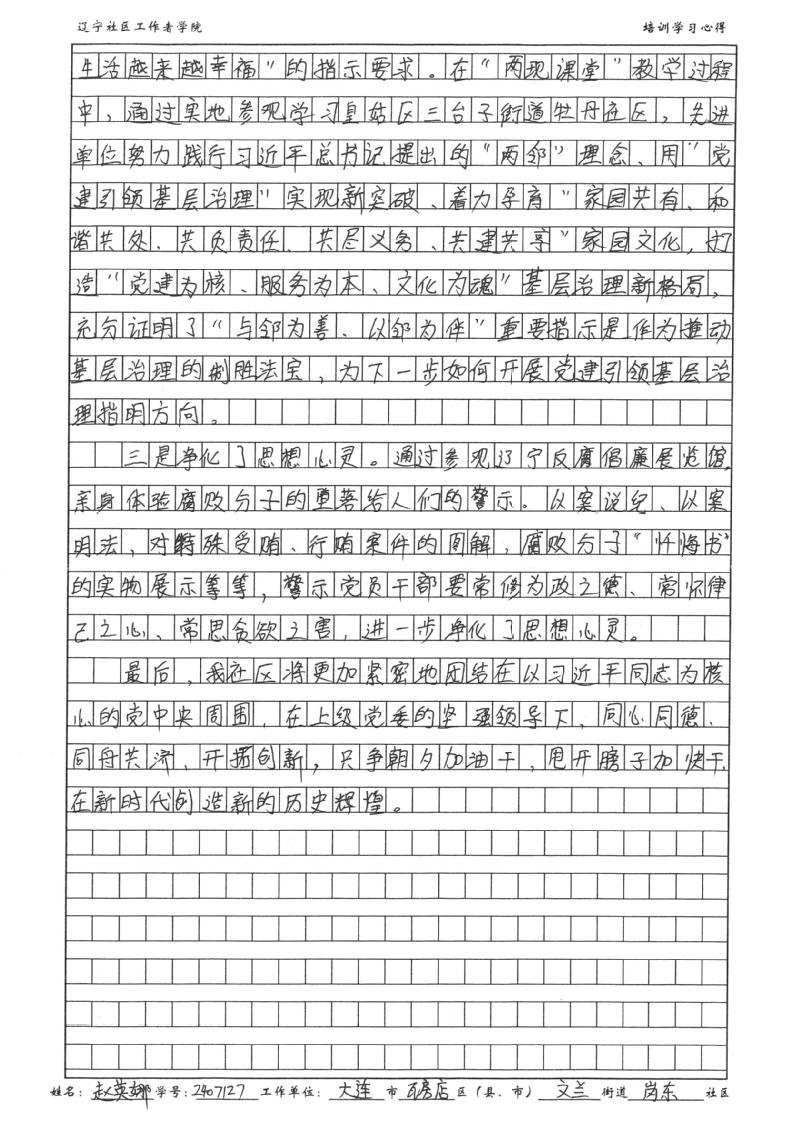 辽宁社区工作者学院 培训学习心得
生活越来越幸福”的指示要求。在“两现课堂”教学过程
中，通过实地参观学习皇姑区三台子街道牡丹社区，先进
单位努力践行习近平总书记提出的“两邻”理念、用“党
建引领基层治理”实现新突破、着力孕育“家园共有、和
谐共处、共负责任、共尽义务、共建共享”家园文化，打
造“党建为核、服务为本、文化为魂”基层治理新格局，
充分证明了“与邻为善、以邻为伴”重要指示是作为推动
基层治理的制胜法宝，为下一步如何开展党建引领基层治
理指明方向。
三是净化了思想心灵。通过参观辽宁反腐倡廉展览馆，
亲身体验腐败分子的重著给人们的警示。以案说纪、以案
明法，对特殊受贿、行贿案件的图解，腐败分子“忏悔书”
的实物展示等等，警示党员干部要常修为政之德、常怀律
己之心、常思贪欲之害，进一步净化了思想心灵。
最后，我社区将更加紧密地团结在以习近平同志为核
心的党中央周围，在上级党委的坚强领导下，同心同德、
同舟共济、开拓创新，只争朝夕加油干，甩开膀子加快干，
在新时代创造新的历史辉煌。
姓名：赵英娜 学号：2407127 工作单位：大连 市 瓦房店 区（县、市） 文兰 街道 岗东 社区